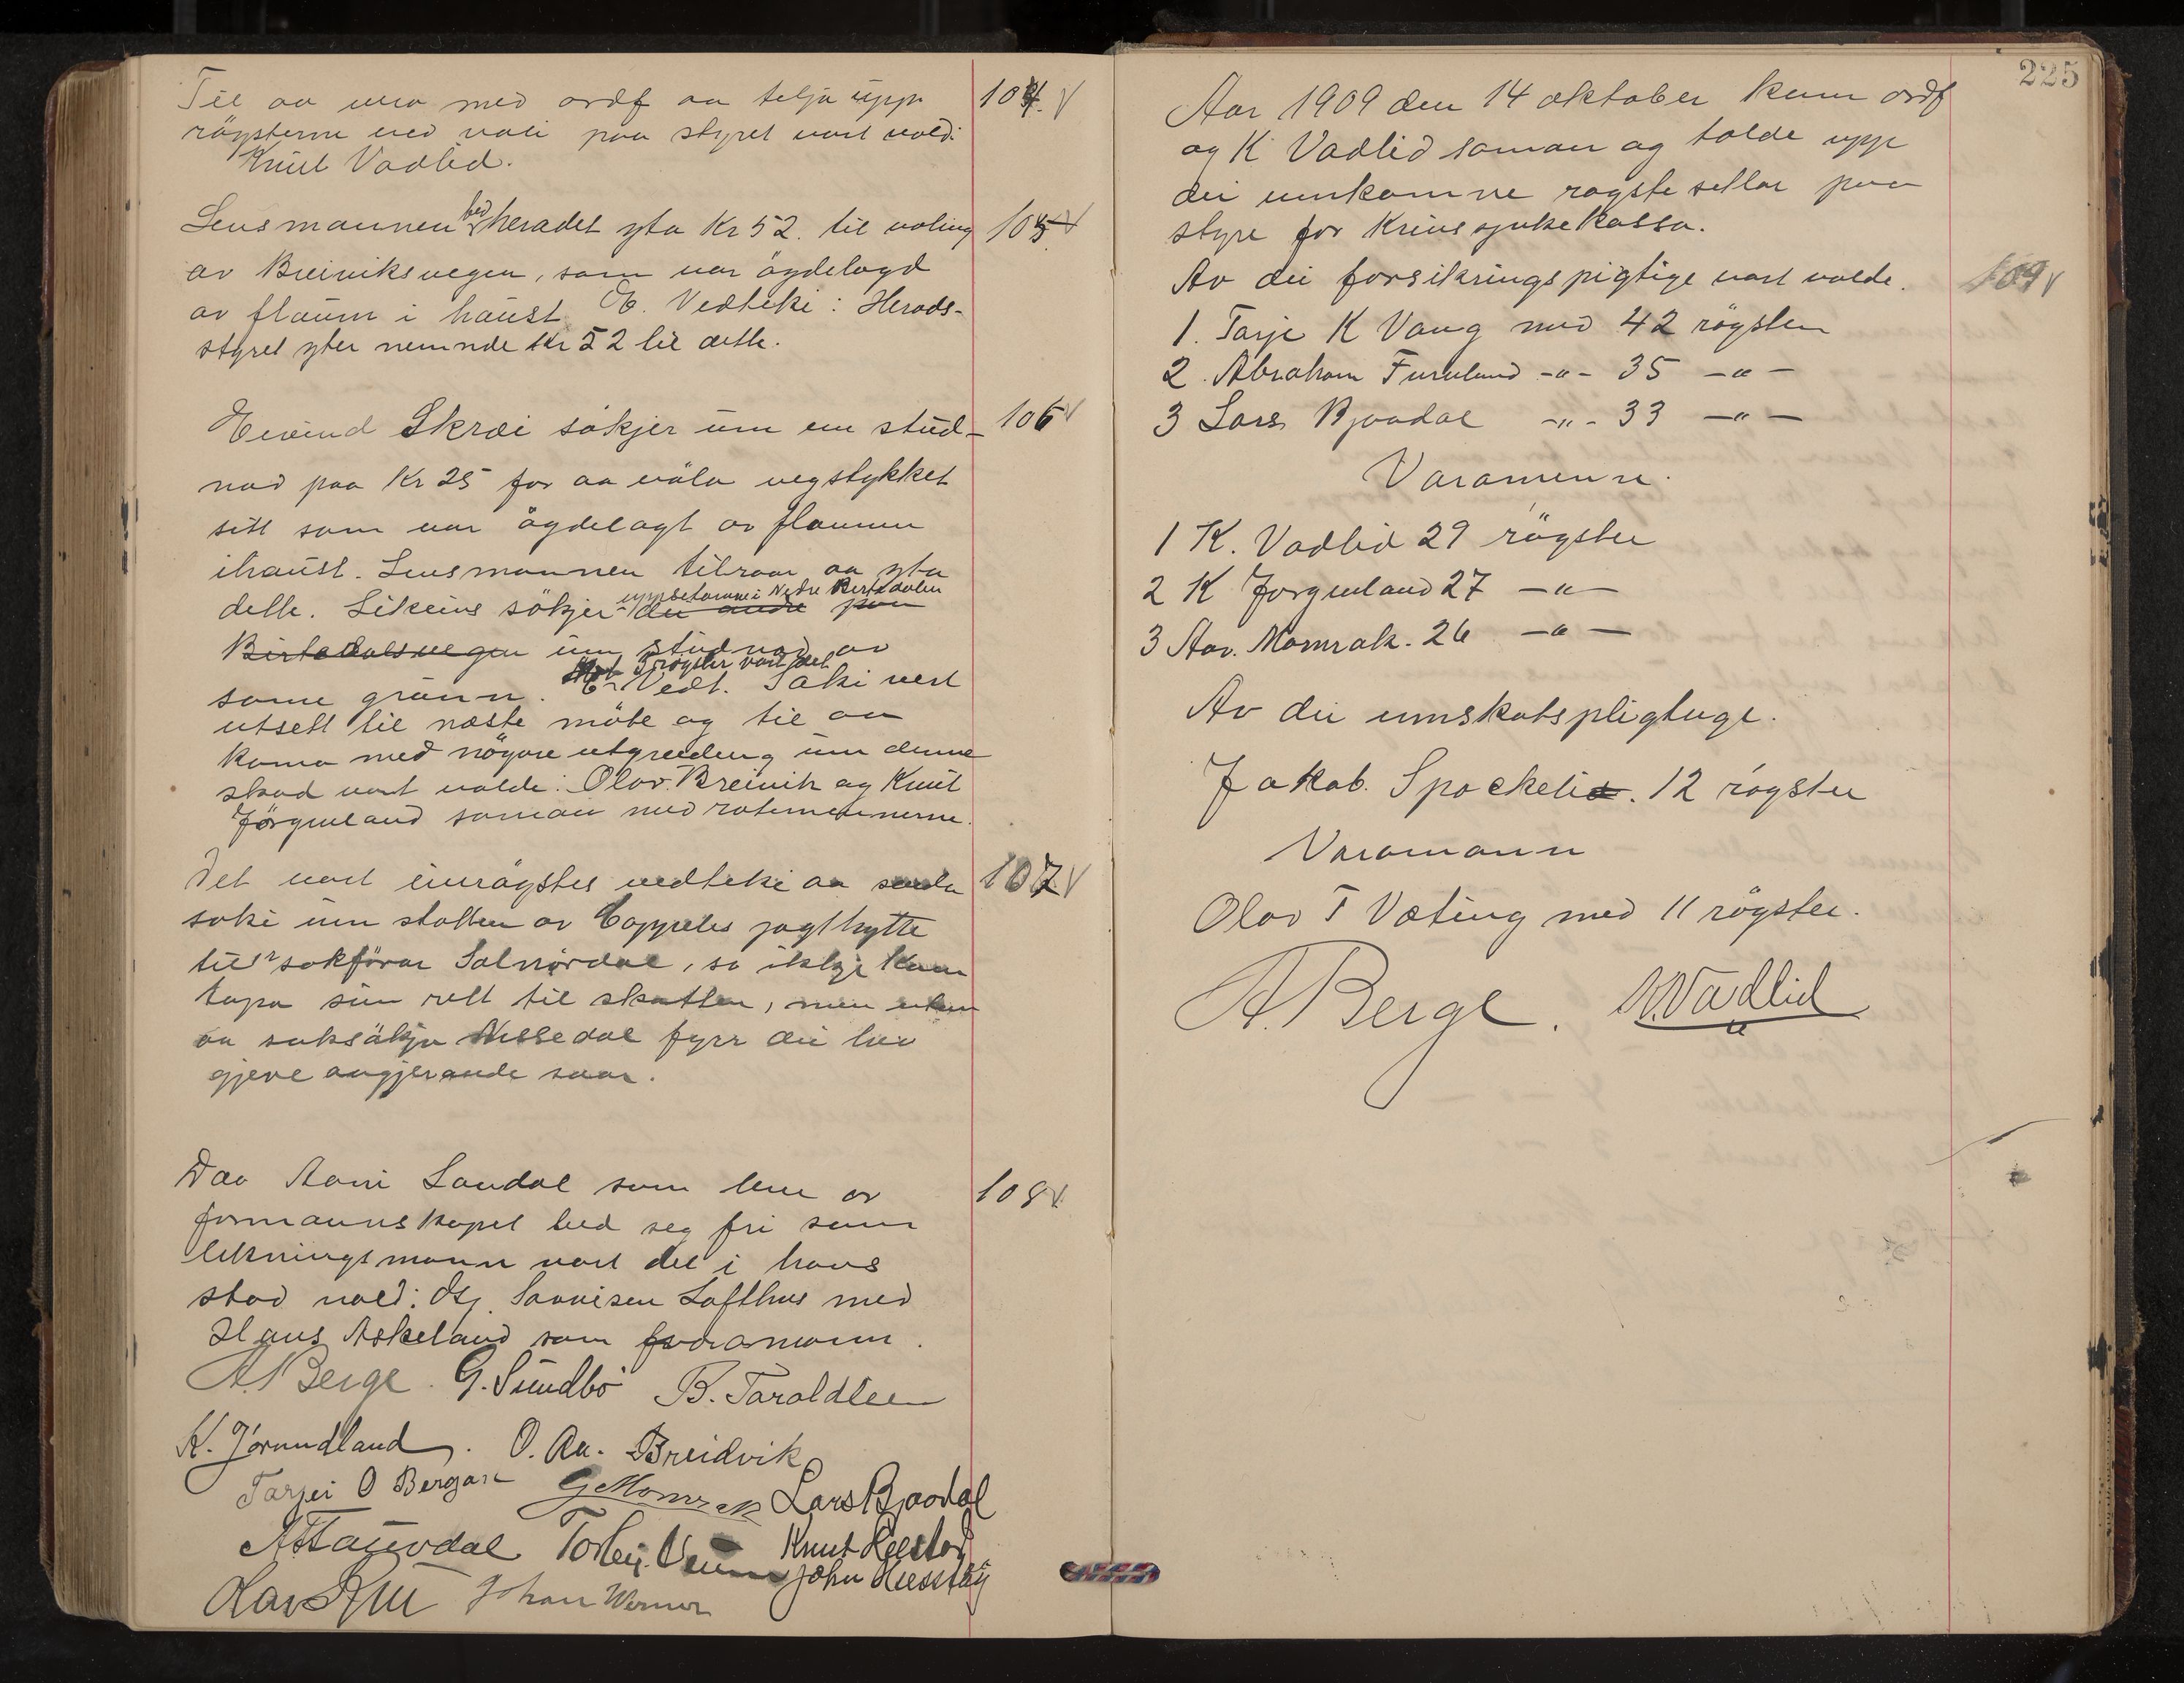 Til aa vera med ordf aa telja upp 104.
røysterne ved vali paa styret vart vald:
Knut Vadlid.
Lensmannen bed heradet yta Kr 52. til vøling 105
av Breiviksvegen, som var øydelagd
av flaum i haust. Vedteki: Herads-
styret yter nemnde Kr 52 til dette.
Eivind Skræi søkjer um ein stud- 106
nad paa Kr 25 for aa vøla vegstykket
sitt som var øydelagt av flaumen
ihaust. Lensmannen tilraar aa yta
uppsetarane i Nedre Birtedalen
dette. Likeins søkjer dei andre paa
Birtedalsvegen um studnad av
Mot 5 røyster vart det
same grunn. Vedt. Saki vert
utsett til næste møte og til aa
koma med nøgare utgreiding um denne
skad vart valde: Olav Breivik og Knut
Jørgunland saman med rotemennerne.
Det vart einrøystes vedteki aa senda 107
saki um skatten av Cappeles jagthytte
til sakførar Salnørdal, so ikkje kann
tapa sin rett til skatten, men utan
aa saksøkja Nissedal fyrr dei hev
gjeve avgjerande svar.
Daa Aani Landal som lem av 108
formannskapet bed seg fri som
likningsmann vart det i hans
stad vald: Lofthus med
Hans Askeland som varamann.
A. Berge. G. Sundbö B. Taraldlien
K. Jörundland. O. Aa. Breidvik
Tarjei O Bergan G Momrak Lars Bjaadal
Torleiv Knut
John
Johan Werner
225
Aar 1909 den 14 oktober kom ordf
og K Vadlid saman og talde upp
dei innkomne røystesetlar paa
styre for Krinssjukekassa.
Av dei forsikringspigtige vart valde. 109
1. Tarje K Vaug med 42 røyster
2. Abraham Furuland -"- 35 -"-
3 Lars Bjaadal -"- 33 -"-
Varamenn.
1 K. Vadlid 29 røyster
2 K Jørgunland 27 -"-
3 Aav. Momrak. 26 -"-
Av dei umskotspligtuge.
Jakob. Spockeli. 12 røyster
Varamann
Olav T Væting med 11 røyster.
A. Berge. K. Vadlid